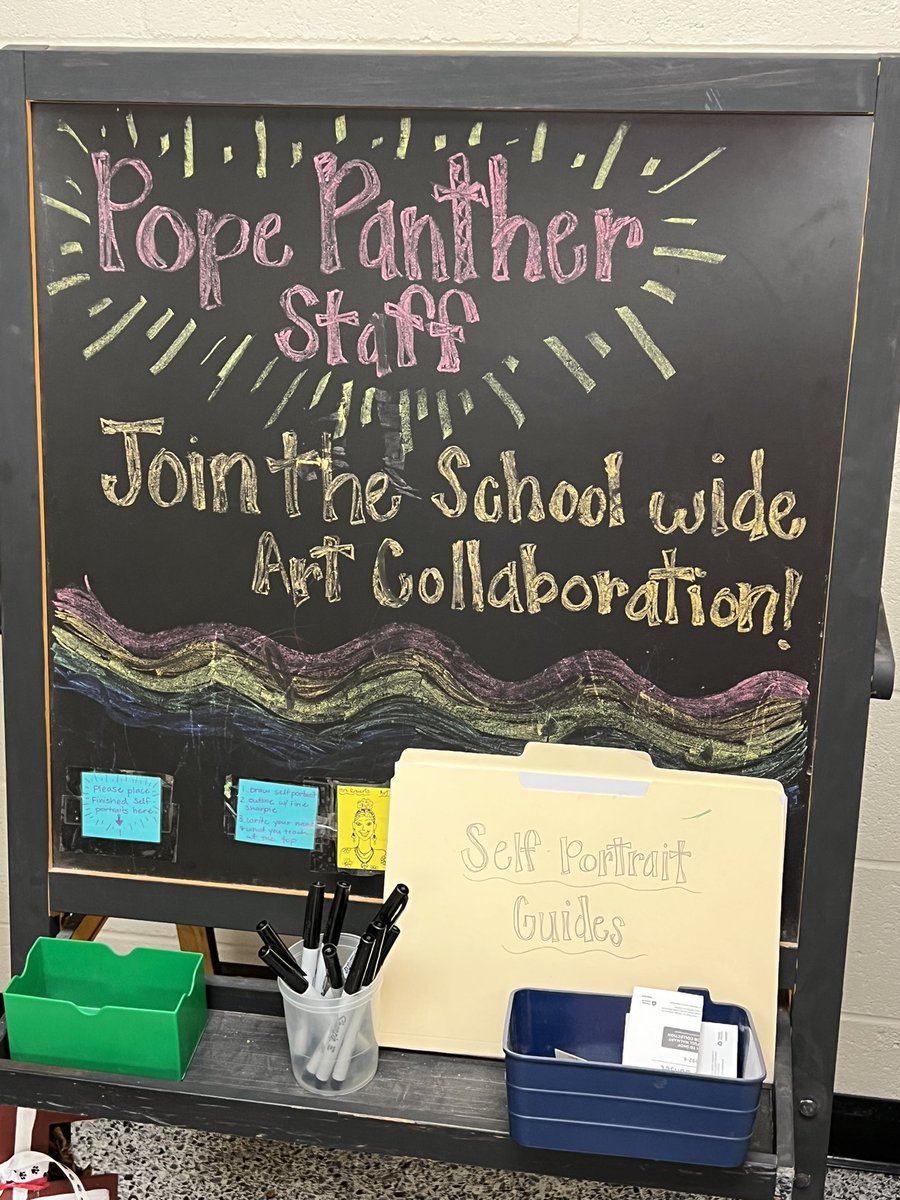 Pope Panther
Staff
Join the School wide
Art Collaboration!
Please place
Finished Self
portraits here
1. Draw self portrait
2. outline w/ Fine
Sharpie
3. Write your name
& what you teach
at the top
Self Portrait
Guides